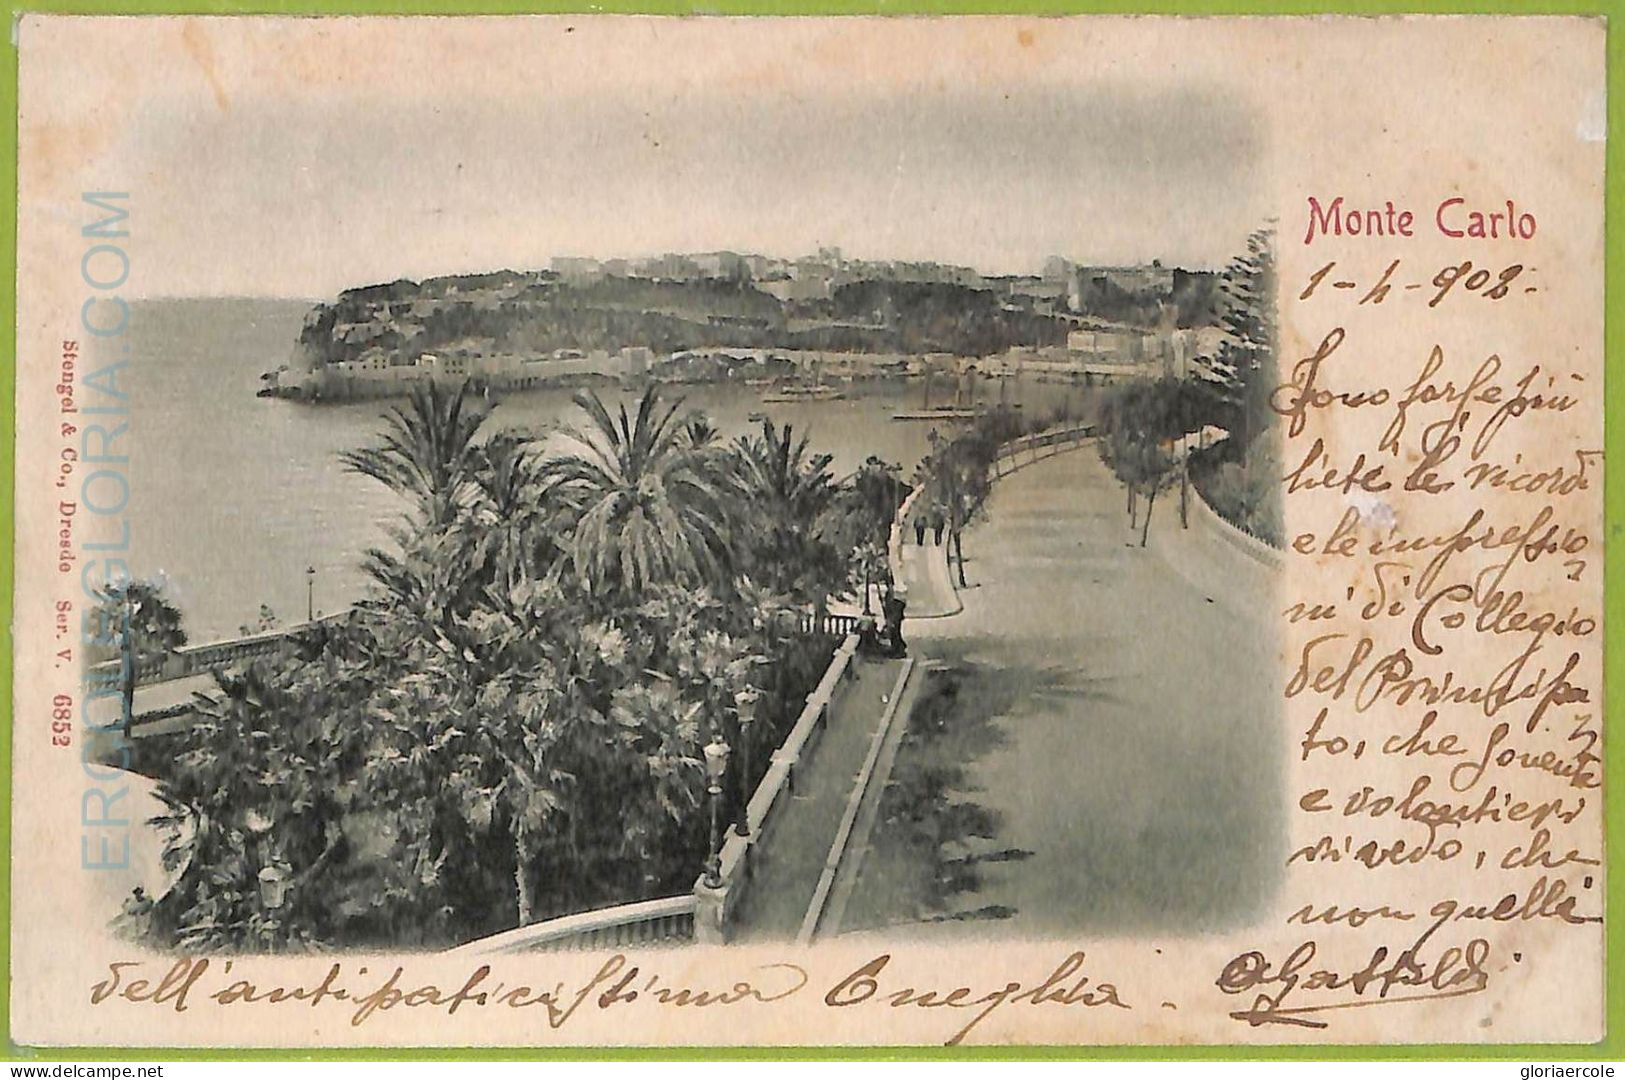 Monte Carlo
1-4-902.
Sono forse più
liete le ricordi
e le impressio
ni di Collegio
del Principa
to, che sovente
e volontieri
rivedo, che
non quelle
dell'antipaticissima Oneglia.
Gastaldi
Stengel & Co., Dresde Ser. V. 6852
ERCOLEGLORIA.COM
delcampe.net
gloriaercole